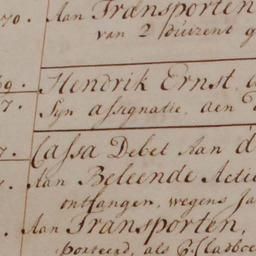 70. Aan Transporten
van 2 duizent g
9. Hendrik Ernst,
7. Syn assignatie, aen
7. Cassa Debet Aan d
7. Aan Beleende Actie
ontfangen, wegens Ja
Aan Transporten,
porteerd, als P.r Cladboe